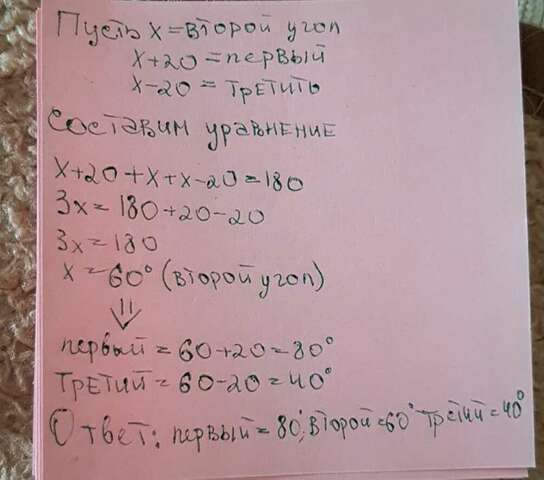 Пусть x = второй угол
x+20 = первый
x-20 = третить
Составим уравнение
x+20+x+x-20=180
3x=180+20-20
3x=180
x=60° (второй угол)
⇓
первый = 60+20=80°
Третий = 60-20=40°
Ответ: первый = 80°, второй = 60° Третий = 40°